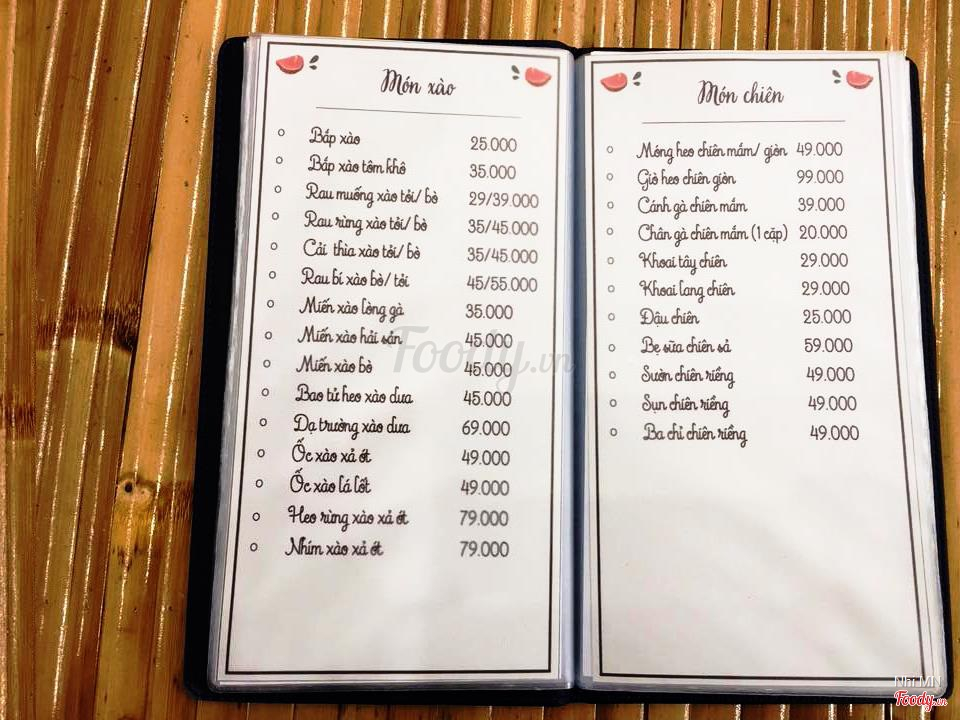 Món xào
Bắp xào 25.000
Bắp xào tôm khô 35.000
Rau muống xào tỏi/ bò 29/39.000
Rau rừng xào tỏi/ bò 35/45.000
Cải thìa xào tỏi/ bò 35/45.000
Rau bí xào bò/ tỏi 45/55.000
Miến xào lòng gà 35.000
Miến xào hải sản 45.000
Miến xào bò 45.000
Bao tử heo xào dưa 45.000
Dạ trường xào dưa 69.000
Ốc xào xả ớt 49.000
Ốc xào lá lốt 49.000
Heo rừng xào xả ớt 79.000
Nhím xào xả ớt 79.000
Món chiên
Móng heo chiên mắm/ giòn 49.000
Giò heo chiên giòn 99.000
Cánh gà chiên mắm 39.000
Chân gà chiên mắm (1 cặp) 20.000
Khoai tây chiên 29.000
Khoai lang chiên 29.000
Đậu chiên 25.000
Bẹ sữa chiên sả 59.000
Sườn chiên riềng 49.000
Sụn chiên riềng 49.000
Ba chỉ chiên riềng 49.000
Foody.vn
Nhi.MN
Foody.vn